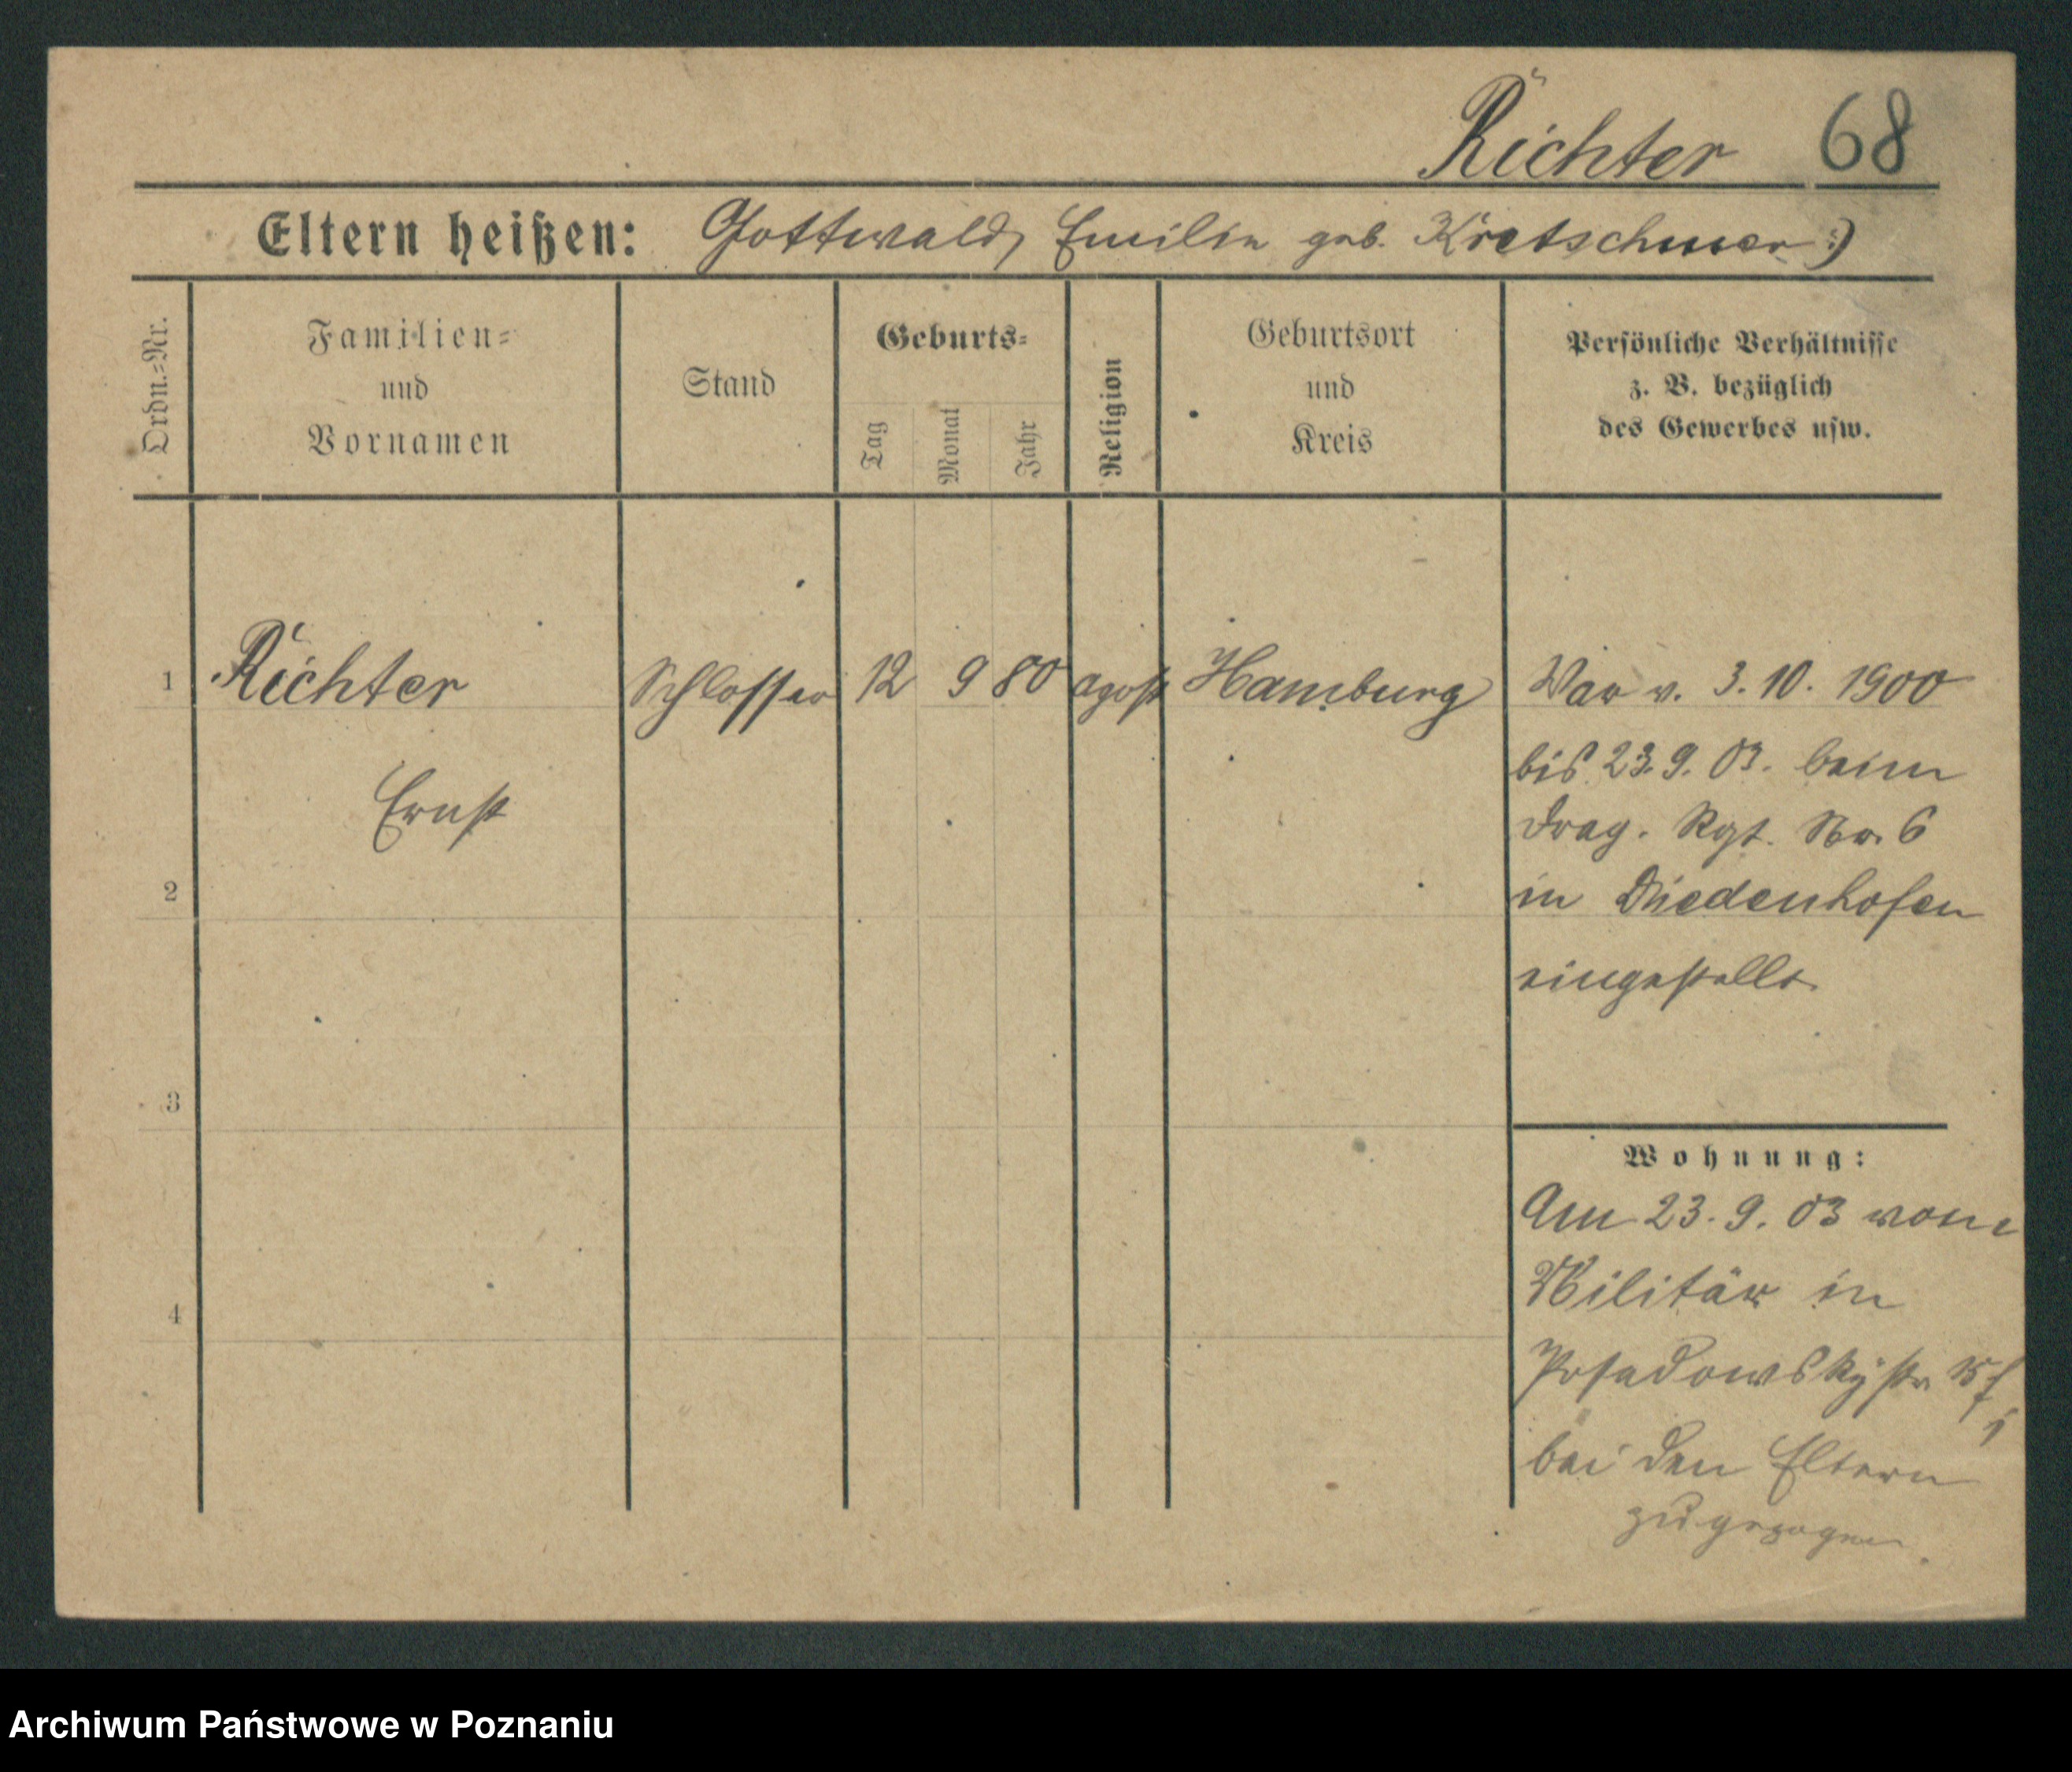 Richter 68
Eltern heißen: Gottwald, Emilie geb. Kretschmer :)
Ordn.-Nr.
Familien-
und
Vornamen
Stand
Geburts-
Tag
Monat
Jahr
Religion
Geburtsort
und
Kreis
Persönliche Verhältnisse
z. B. bezüglich
des Gewerbes usw.
1 Richter Schlosser 12 9 80 Hamburg
Ernst
War v. 3. 10. 1900
bis 23. 9. 03. beim
Drag. Rgt. No. 6
in Diedenhofen
eingestellt
2
3
4
Wohnung:
Am 23. 9. 03 vom
Militär in
Posadowskystr
bei den Eltern
zugezogen.
Archiwum Państwowe w Poznaniu